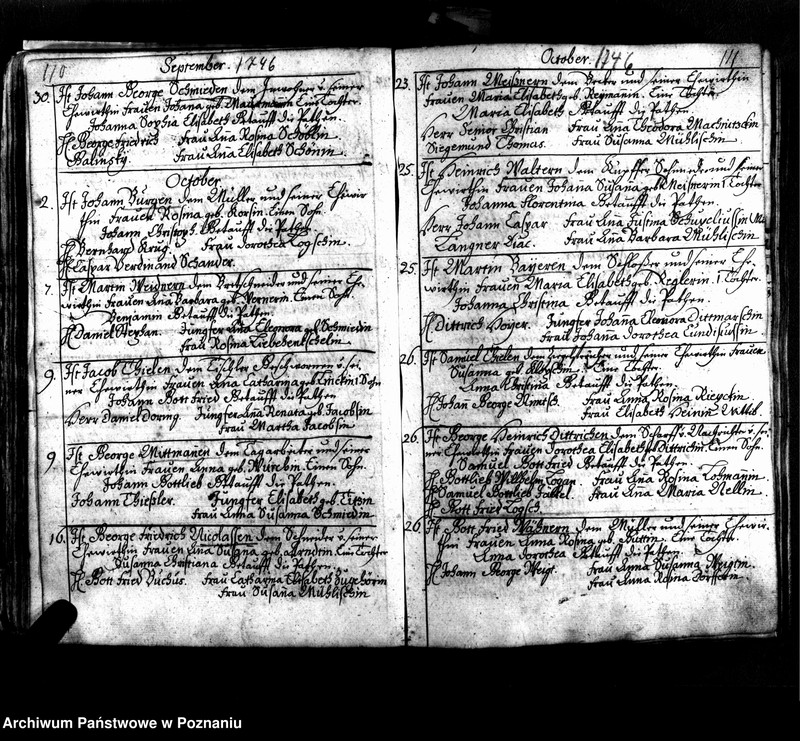 110
September. 1746
30. Ist Johann George Schmieden dem Inwohner u. seiner
Ehewirthin Frauen Johana geb. Eine Tochter.
Johanna Sophia Elisabeth Getaufft die Pathen.
H. George Friedrich Frau Añа Rosina Schöbin
Balinsky. Frau Añа Elisabeth Schönin.
October
2. Ist Johann Bürgen dem Müller und seiner Ehewir
thin Frauen Rosina geb. Korsin Einen Sohn.
Johann Christoph. Getaufft die Pathen.
H. Bernhard Krug. Frau Dorothea Logschin.
H. Caspar Ferdinand Schander.
7. Ist Martin Weignern dem Bretschneider und seiner Ehe-
wirthin Frauen Añа Barbara geb. Wernerin. Einen Sohn.
Benjamin Getaufft die Pathen.
H. Daniel Stephan. Jungfer Añа Eleonora geb. Schmiedin
Frau Rosina Liebehentschelin.
9. Ist Jacob Thielen dem Tischler Geschwornen u. sei-
ner Ehewirthin Frauen Añа Catharina geb. 1 Sohn
Johann Gottfried Getaufft die Pathen
Herr Daniel Döring. Jungfer Añа Renata geb. Jacobsin
Frau Martha Jacobsin
9. Ist George Mittmanen dem Tagarbeiter und seiner
Ehewirthin Frauen Anna geb. Einen Sohn.
Johann Gottlieb Getaufft die Pathen.
Johann Thiessler. Jungfer Elisabeth geb. Titzin
Frau Anna Susanna Schmiedin
16. Ist George Friedrich Nicolassen dem Schneider u. seiner
Ehewirthin Frauen Añа Susana geb. Arndtin Eine Tochter
Susanna Christiana Getaufft die Pathen.
H. Gottfried Fuchus. Frau Catharina Elisabeth
Frau Susana Mühlischin
October. 1746
111
23. Ist Johann Meissnern dem Becker und seiner Ehewirthin
Frauen Maria Elisabeth geb. Eine Tochter
Maria Elisabeth Getaufft die Pathen.
Herr Senior Christian Frau Añа Theodora Machnitzkin
Siegemund Thomas. Frau Susanna Mühlischin
25. Ist Heinrich Waltern dem Kupffer Schmiede und seiner
Ehewirthin Frauen Johana Susana geb. Meisnerin 1 Tochter
Johanna Florentina Getaufft die Pathen.
Herr Johann Caspar Frau Añа Justina
Langner Frau Añа Barbara Mühlischin
25. Ist Martin Bayeren dem Schlosser und seiner Ehe-
wirthin Frauen Maria Elisabeth geb. Keglerin. 1 Tochter.
Johanna Christina Getaufft die Pathen.
H. Dittrich Jungfer Johana Eleonora Dittmarschin
Frau Johana Dorothea
26. Ist Samuel Thielen dem und seiner Ehewirthin Frauen
Susanna geb. Eine Tochter.
Anna Christina Getaufft die Pathen
H. Johañ George Nimtsch. Frau Añа Rosina
Frau Elisabeth Heinin Wittib.
26. Ist George Heinrich Dittrichen dem Scharff u. Nachrichter u. sei-
ner Ehewirthin Frauen Dorothea Elisabeth geb. Dittrichin Einen Sohn.
Samuel Gottfried Getaufft die Pathen.
H. Gottlieb Wilhelm Frau Añа Rosina
H. Samuel Gottlieb Frau Añа Maria Nellin
H. Gottfried Logsch.
26. Ist Gottfried dem Müller und seiner Ehewir-
thin Frauen Anna Rosina geb. Eine Tochter.
Anna Dorothea Getaufft die Pathen.
H. Johann George Weigt. Frau Anna Susanna Weigtin
Frau Anna Rosina
Archiwum Państwowe w Poznaniu